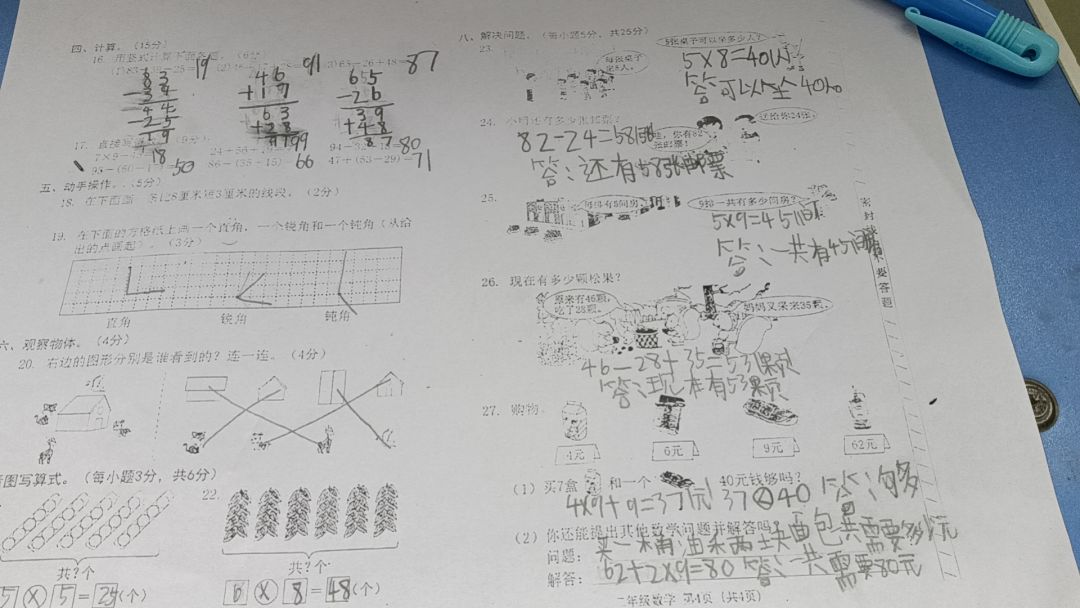 四、计算。（15分）
16. 用竖式计算下面各题。（6分）
19
91
(3)65－26＋48＝87
83
－34
44
－25
19
46
＋17
63
＋28
91
65
－26
39
＋48
87
17. 直接写 （9分）
18
99
80
50
86－(35－15) 66
47＋(63－29)＝71
五、动手操作。（5分）
19. 在下面的方格纸上画一个直角、一个锐角和一个钝角（从给
出的点画起）。（3分）
直角 锐角 钝角
六、观察物体。（4分）
20. 右边的图形分别是谁看到的？连一连。（4分）
图写算式。（每小题3分，共6分）
22.
共？个 共？个
5×5＝25(个) 6×8＝48(个)
八、解决问题。（每小题5分，共25分）
23.
每张桌子
坐8人。
5张桌子可以坐多少人？
5×8＝40(人)
答可以坐40人
24.
送给你24张。
82－24＝58(张)
答：还有58张邮票
25.
每 有5间房
9 一共有多少间房？
5×9＝45(间)
答：一共有45间
密封
要答题
26. 现在有多少颗松果？
原来有46颗，
吃了28颗。
妈妈又采来35颗。
46－28＋35＝53(颗)
答：现在有53颗
27. 购物。
4元 6元 9元 62元
(1) 买7盒 和一个 40元钱够吗？
4×9＋9＝37(元) 37<40 答：够
(2) 你还能提出其他数学问题并解答吗
问题：买一桶油和两块面包共需要多少元
解答：62＋2×9＝80 答：一共需要80元
二年级数学 第4页（共4页）